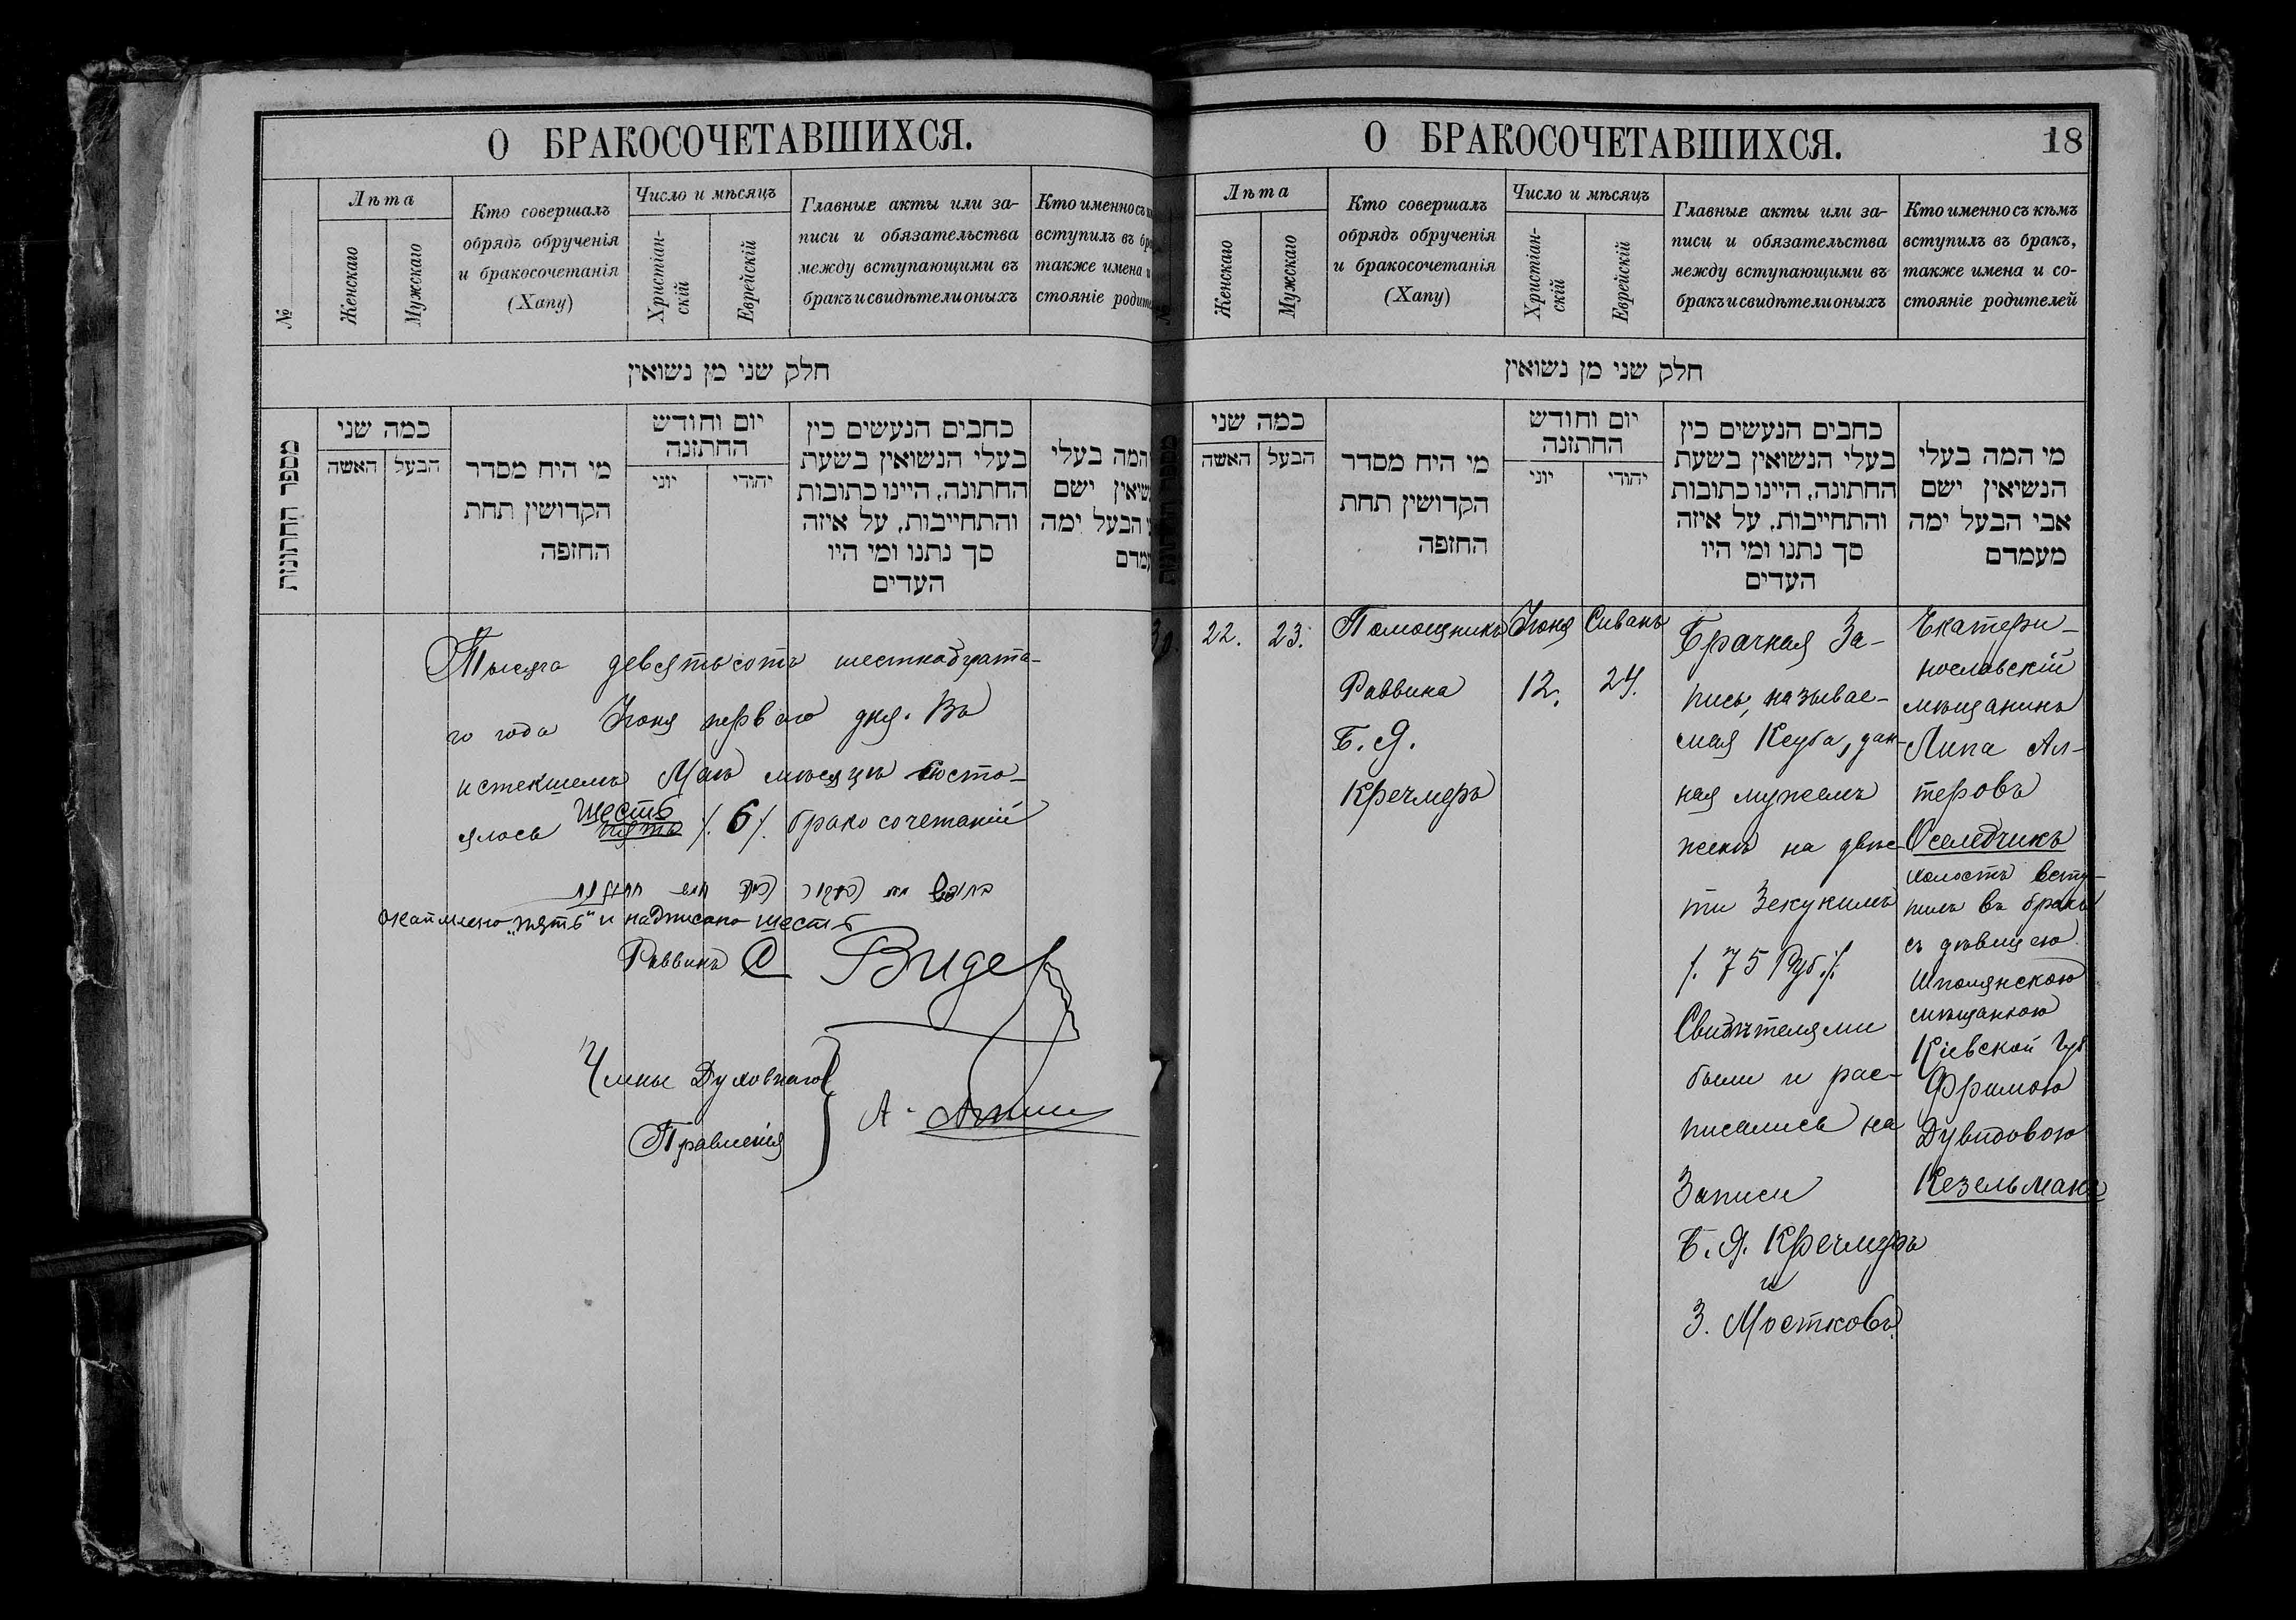 О БРАКОСОЧЕТАВШИХСЯ.
№
Лѣта
Женскаго
Мужскаго
Кто совершалъ
обрядъ обрученія
и бракосочетанія
(Хапу)
Число и мѣсяцъ
Христіан-
скій
Еврейскій
Главные акты или за-
писи и обязательства
между вступающими въ
бракъ и свидѣтели оныхъ
Кто именно съ
вступилъ въ
также имена и
стояніе
חלק שני מן נשואין
מספר החתונות
כמה שני
האשה
הבעל
מי היח מסדר
הקדושין תחת
החופה
יום וחודש
החתונה
יוני
יהודי
כחבים הנעשים כין
בעלי הנשואין בשעת
החתונה, היינו כתובות
והתחייבות, על איזה
סך נתנו ומי היו
העדים
המה בעלי
ישם
הבעל ימה
Тысяча девятьсотъ шестнадцата-
го года Іюня перваго дня. Въ
истекшемъ Маѣ мѣсяцѣ состо-
ялось
шесть
пять /. 6 /. бракосочетаній
"пять" и надписано шесть
Раввинъ С Видер
Члены Духовнаго
Правленія
А.
О БРАКОСОЧЕТАВШИХСЯ.
18
Лѣта
Женскаго
Мужскаго
Кто совершалъ
обрядъ обрученія
и бракосочетанія
(Хапу)
Число и мѣсяцъ
Христіан-
скій
Еврейскій
Главные акты или за-
писи и обязательства
между вступающими въ
бракъ и свидѣтели оныхъ
Кто именно съ кѣмъ
вступилъ въ бракъ,
также имена и со-
стояніе родителей
חלק שני מן נשואין
כמה שני
האשה
הבעל
מי היח מסדר
הקדושין תחת
החופה
יום וחודש
החתונה
יוני
יהודי
כחבים הנעשים כין
בעלי הנשואין בשעת
החתונה, היינו כתובות
והתחייבות, על איזה
סך נתנו ומי היו
העדים
מי המה בעלי
הנשיאין ישם
אבי הבעל ימה
מעמדם
30.
22.
23.
Помощникъ
Раввина
Б. Я.
Кречмеръ
Іюня
12.
Сиванъ
24.
Брачная За-
пись, называе-
мая Кеуба, дан-
ная мужемъ
женѣ на двѣс-
ти Зекукимъ
/. 75 Руб. /.
Свидѣтелями
были и рас-
писались на
Записи
Б. Я. Кречмеръ
и
З. Мостковъ.
Екатери-
нославскій
мѣщанинъ
Липа Ал-
теровъ
Оселедчикъ
холостъ всту-
пилъ въ бракъ
съ дѣвицею
Шполянскою
мѣщанкою
Кіевской Губ.
Фримою
Дувидовою
Кезельманъ